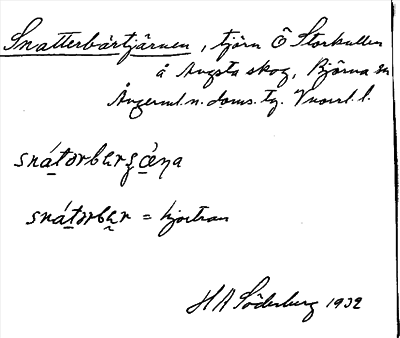 Snatterbärtjärnen, tjärn Ö Storkullen
å Avgsta skog, Björna sn
Ångerml. n. doms. tg. Vnorrl. l.
snátərbærʒǿ̀ŋa
snátərbær = hjortron
H A Söderberg 1932